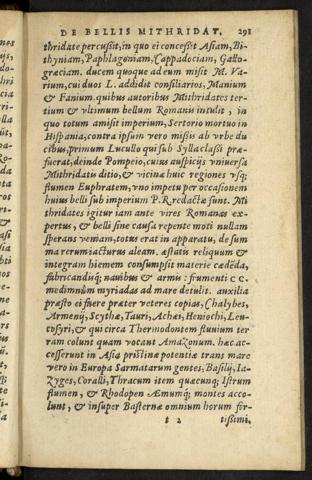 DE BELLIS MITHRIDAT. 291
thridate percussit, in quo ei concessit Asiam, Bi-
thyniam, Paphlagoniam, Cappadociam, Gallo-
græciam. ducem quoque ad eum misit M. Va-
rium, cui duos L. addidit consiliarios, Manium
& Fanium. quibus autoribus Mithridates ter-
tium & vltimum bellum Romanis intulit, in
quo totum amisit imperium, Sertorio mortuo in
Hispania, contra ipsum vero missis ab vrbe du
cibus, primum Lucullo qui sub Sylla classi præ-
fuerat, deinde Pompeio, cuius auspicijs vniuersa
Mithridatis ditio, & vicinæ huic regiones vsq;
flumen Euphratem, vno impetu per occasionem
huius belli sub imperium P.R. redactæ sunt. Mi
thridates igitur iam ante vires Romanas ex-
pertus, & belli sine causa repente moti nullam
sperans veniam, totus erat in apparatu, de sum
ma rerum iacturus aleam. æstatis reliquum &
integram hiemem consumpsit materiæ cædēda,
fabricandisq́; nauibus & armis: frumenti cc.
medimnūm myriadas ad mare detulit. auxilia
præsto ei fuere præter veteres copias, Chalybes,
Armenij, Scythæ, Tauri, Achæi, Heniochi, Leu-
cosyri, & qui circa Thermodontem fluuium ter
ram colunt quam vocant Amazonum. hæc ac-
cesserunt in Asia pristinæ potentiæ trans mare
vero in Europa Sarmatarum gentes, Basilij, Ia-
zyges, Coralli, Thracum item quæcunq; Istrum
flumen, & Rhodopen Æmumq́; montes acco-
lunt, & insuper Basternæ omnium horum for-
t 2 tissimi.